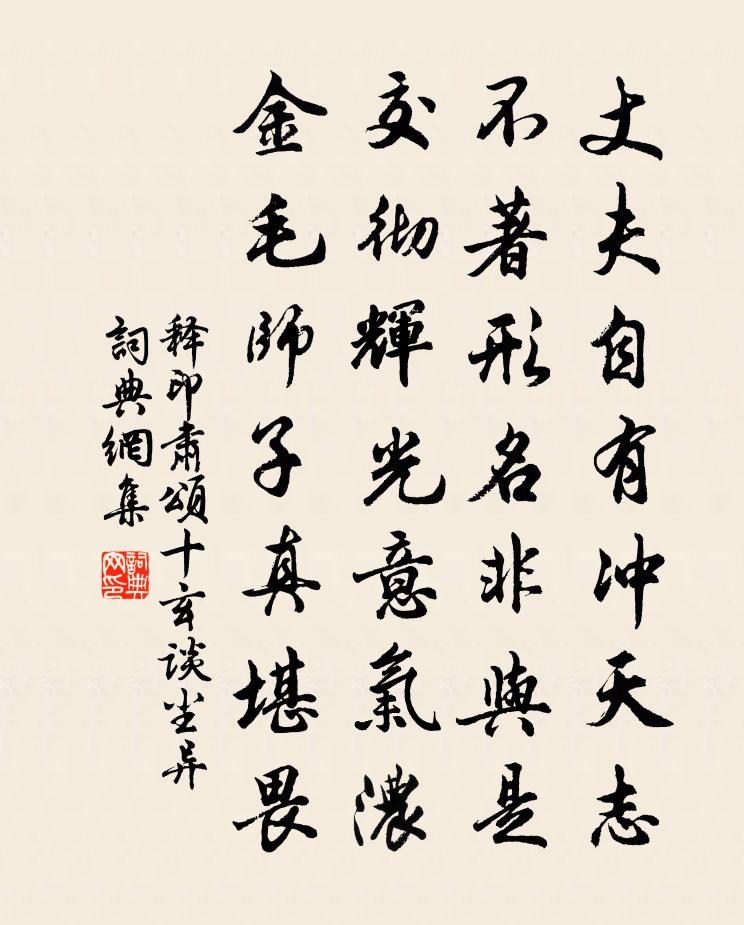 丈夫自有冲天志
不著形名非與是
交彻輝光意氣濃
金毛師子真堪畏
释印肃頌十玄谈尘异
詞典網集
詞典
网印